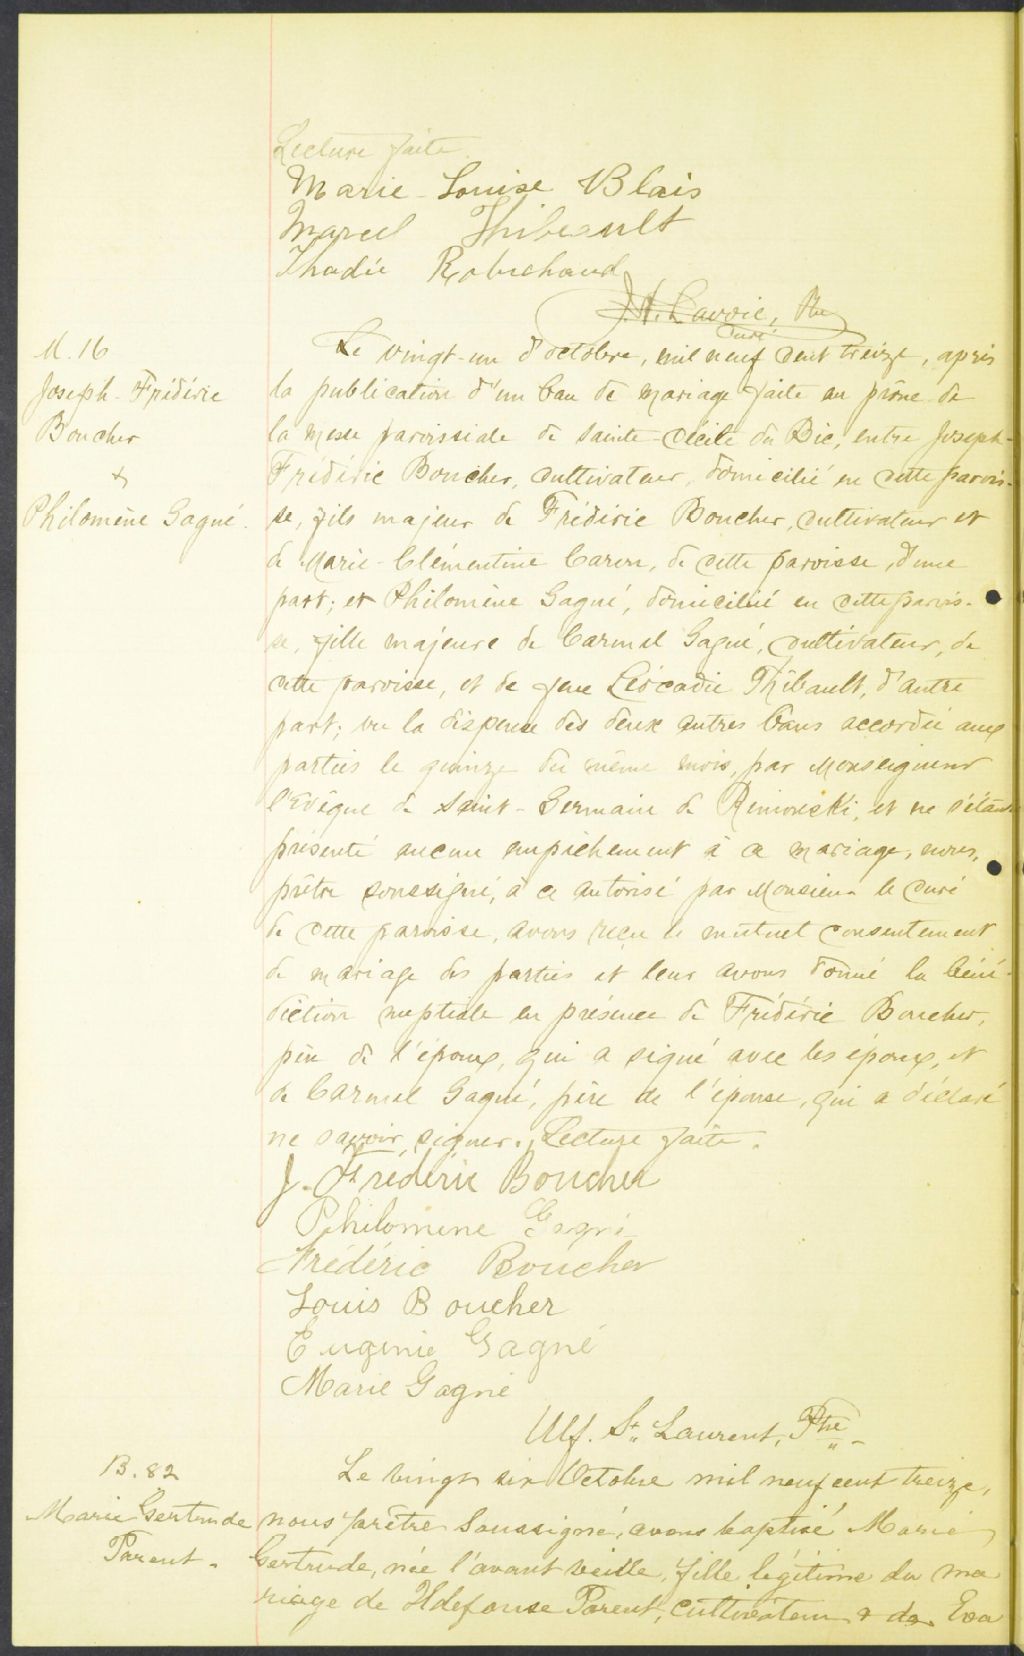 Lecture faite.
Marie-Louise Blais
Marcel Thibeault
Thadée Robichaud
J. A. Lavoie, Ptre
Curé
M. 16
Joseph-Frédéric
Boucher
+
Philomène Gagné.
Le vingt-un d'octobre, mil neuf cent treize, après
la publication d'un ban de mariage faite au prône de
la messe paroissiale de Sainte-Cécile du Bic, entre Joseph-
Frédéric Boucher, cultivateur, domicilié en cette parois-
se, fils majeur de Frédéric Boucher, cultivateur et
de Marie-Clémentine Caron, de cette paroisse, d'une
part; et Philomène Gagné, domiciliée en cette parois-
se, fille majeure de Carmel Gagné, cultivateur, de
cette paroisse, et de feue Léocadie Thibault, d'autre
part; vu la dispense des deux autres bans accordée aux
parties le quinze du même mois, par Monseigneur
l'Evêque de Saint-Germain de Rimouski, et ne s'étant
présenté aucun empêchement à ce mariage, nous,
prêtre soussigné, à ce autorisé par Monsieur le curé
de cette paroisse, avons reçu le mutuel consentement
de mariage des parties et leur avons donné la béné-
diction nuptiale en présence de Frédéric Boucher,
père de l'époux, qui a signé avec les époux, et
de Carmel Gagné, père de l'épouse, qui a déclaré
ne savoir signer. Lecture faite.
J. Frédéric Boucher
Philomène Gagné
Frédéric Boucher
Louis Boucher
Eugénie Gagné
Marie Gagné
Ulf. St. Laurent, Ptre
B. 82
Marie Gertrude
Parent.
Le vingt six Octobre mil neuf cent treize,
nous prêtre soussigné, avons baptisé Marie
Gertrude, née l'avant veille, fille légitime du ma
riage de Ildefonse Parent, cultivateur & de Eva